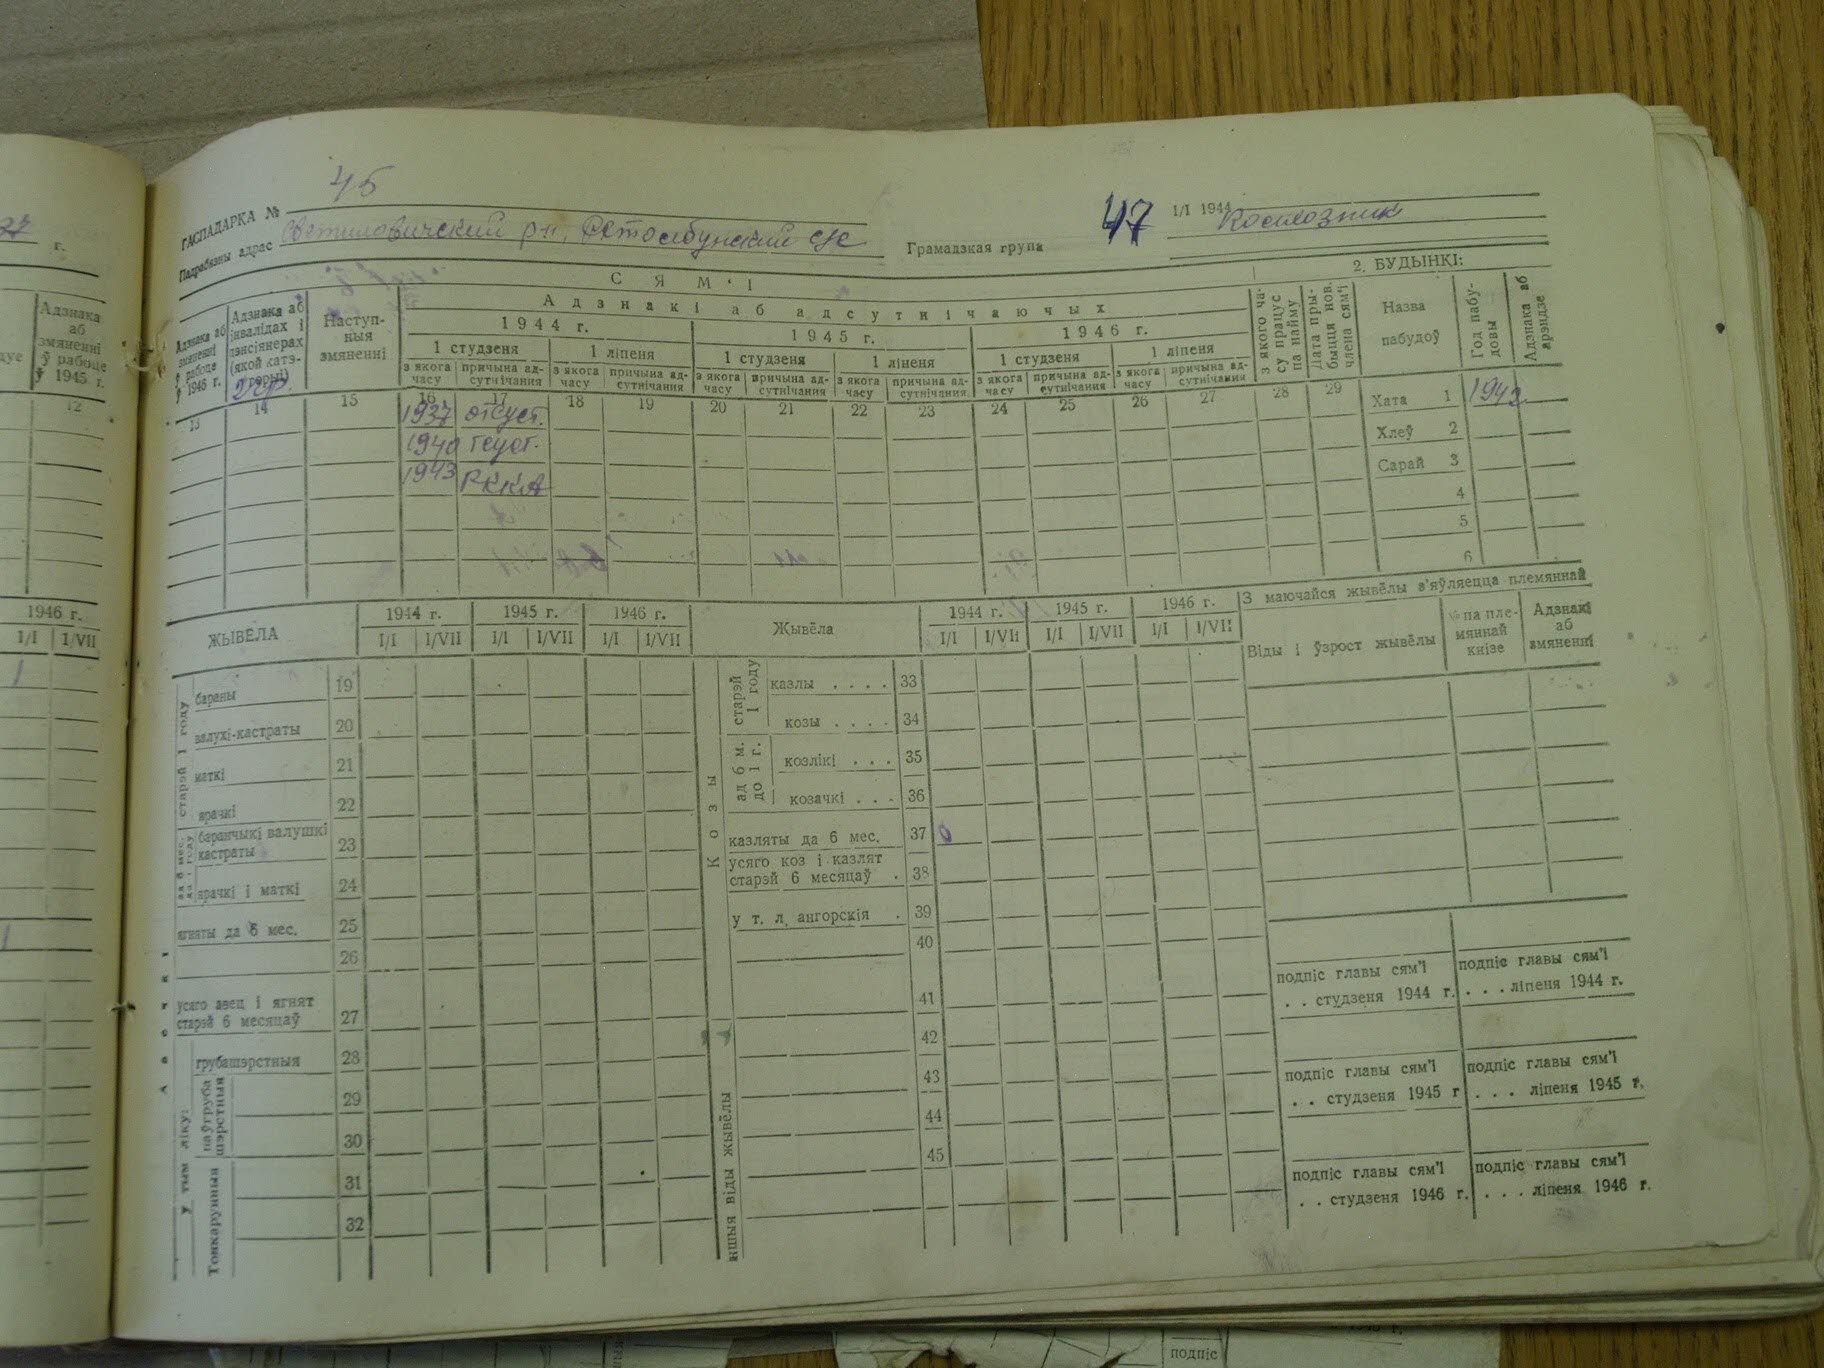 45
ГАСПАДАРКА №
47
1/I 1944
Колхозник
Падрабязны адрас Светиловичский р-н, Столбунский с/с
Грамадзкая група
СЯМ'І
2. БУДЫНКІ:
Адзнакі аб адсутнічаючых
1944 г. 1945 г. 1946 г.
1 студзеня 1 ліпеня 1 студзеня 1 ліпеня 1 студзеня 1 ліпеня
з якога часу причына адсутнічания з якога часу причына адсутнічания з якога часу причына адсутнічания з якога часу причына адсутнічания з якога часу причына адсутнічания з якога часу причына адсутнічания
Адзнака аб змяненні ў рабоце ў 1945 г.
Адзнака аб змяненні ў рабоце ў 1946 г.
Адзнака аб інвалідах і пэнсіянерах (якой катэгорыі)
Наступныя змяненні
з якога часу працуе па найму
Дата прыбыцця нов. члена сям'і
Назва пабудоў
Год пабудовы
Адзнака аб арэндзе
12 13 14 15 16 17 18 19 20 21 22 23 24 25 26 27 28 29
1937 отсуст.
1940
1943 РККА
Хата 1 1942
Хлеў 2
Сарай 3
4
5
6
1946 г.
1/I 1/VII
ЖЫВЁЛА
1944 г. 1945 г. 1946 г.
I/I I/VII I/I I/VII I/I I/VII
Жывёла
1944 г. 1945 г. 1946 г.
I/I I/VII I/I I/VII I/I I/VII
З маючайся жывёлы з'яўляецца племяннай
Віды і ўзрост жывёлы
№ па племяннай кнізе
Адзнакі аб змяненні
Авечкі
старэй 1 году
бараны 19
валухі-кастраты 20
маткі 21
ярачкі 22
ад 6 мес. да 1 году
баранчыкі валушкі кастраты 23
ярачкі і маткі 24
ягняты да 6 мес. 25
26
усяго авец і ягнят старэй 6 месяцаў 27
у тым ліку:
грубашэрстныя 28
паўгрубашэрстныя
29
30
Тонкарунныя
31
32
Козы
старэй 1 году
казлы . . . . 33
козы . . . . 34
ад 6 м. до 1 г.
козлікі . . . 35
козачкі . . . 36
казляты да 6 мес. 37 0
усяго коз і казлят старэй 6 месяцаў . 38
у т. л. ангорскія . 39
40
41
іншыя віды жывёлы
42
43
44
45
подпіс главы сям'і . . студзеня 1944 г.
подпіс главы сям'і . . . ліпеня 1944 г.
подпіс главы сям'і . . студзеня 1945 г
подпіс главы сям'і . . . ліпеня 1945 г.
подпіс главы сям'і . . студзеня 1946 г.
подпіс главы сям'і . . . ліпеня 1946 г.
подпіс